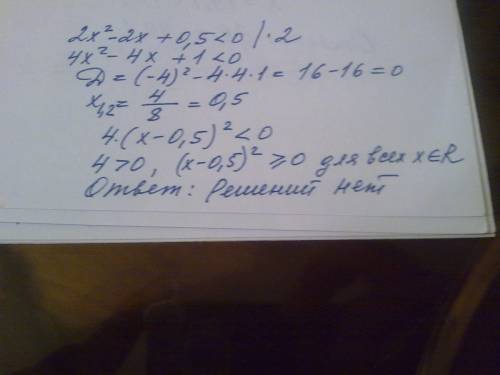 2x²-2x+0,5<0 |·2
4x²-4x+1<0
D=(-4)²-4·4·1=16-16=0
x₁,₂=4/8=0,5
4·(x-0,5)²<0
4>0, (x-0,5)²≥0 для всех x∈R
Ответ: Решений нет